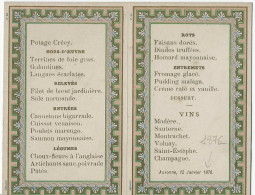 Potage Crécy.
HORS-D'ŒUVRE
Terrines de foie gras.
Galantines.
Langues écarlates.
RELEVÉS
Filet de bœuf jardinière.
Sole normande.
ENTRÉES
Canetons bigarrade.
Cuissot venaison.
Poulets marengo.
Saumon mayonnaises.
LÉGUMES
Choux-fleurs à l'anglaise
Artichauts sauce poivrade
Pâtés.
ROTS
Faisans dorés.
Dindes truffées.
Homard mayonnaise.
ENTREMETS
Fromage glacé.
Pudding malaga.
Crème café et vanille.
DESSERT.
VINS
Madère.
Sauterne.
Montrachet.
Volnay.
Saint-Estèphe.
Champagne.
Auxonne, 12 Janvier 1876.
1876